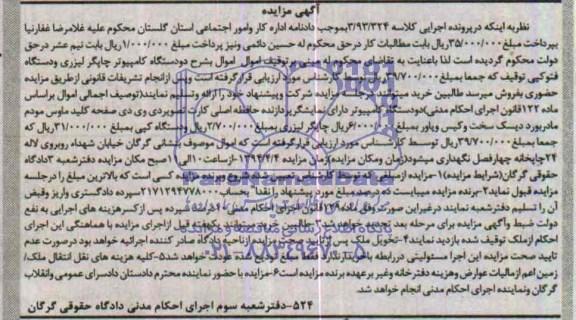 آگهی مزایده
نظر به اینکه در پرونده اجرایی کلاسه ۳/۹۳/۳۲۴ بموجب دادنامه اداره کار وامور اجتماعی استان گلستان محکوم علیه غلامرضا غفارنیا
بپرداخت مبلغ ۳۵/۰۰۰/۰۰۰ ریال بابت مطالبات کار در حق محکوم له حسین دائمی ونیز پرداخت مبلغ ۱/۰۰۰/۰۰۰ ریال بابت نیم عشر در حق
دولت محکوم گردیده است لذا باعنایت به تقاضای محکوم له مبنی بر توقیف اموال اموال بشرح دودستگاه کامپیوتر چاپگر لیزری ودستگاه
فتوکپی توقیف که جمعا بمبلغ ۳۹/۷۰۰/۰۰۰ ریال توسط کارشناس مورد ارزیابی قرار گرفته است پس از انجام تشریفات قانونی از طریق مزایده
حضوری بفروش میرسد طالبین خرید میتوانند درجلسه مزایده شرکت وپیشنهاد خود را ارائه وتسلیم نمایند(توصیف اجمالی اموال براساس
ماده ۱۲۲ قانون اجرای احکام مدنی)دودستگاه کامپیوتر دارای نمایشگر پردازنده حافظه اصلی کارت تصویردی وی دی صفحه کلید ماوس مودم
مادربورد دیسک سخت وکیس وپاور بمبلغ ریال چاپگر لیزری بمبلغ ۲/۷۰۰/۰۰۰ ریال ودستگاه کپی بمبلغ ۳۱/۰۰۰/۰۰۰ ریال که
جمعا بمبلغ ۳۹/۷۰۰/۰۰۰ ریال توسط کارشناس مورد ارزیابی قرار گرفته است که اموال موصوف بنشانی گرگان خیابان شهداء روبروی لاله
۲۴ چاپخانه چهارفصل نگهداری میشود(زمان ومکان مزایده)روز مزایده ۱۳۹۴/۴/۴ از ساعت ۱۰ الی صبح مکان مزایده دفترشعبه ۳ دادگاه
حقوقی گرگان(شرایط مزایده)۱-مزایده از مبلغی که توسط کارشناس تعیین شده شروع وبرنده مزایده کسی است که بالاترین مبلغ را درجلسه
مزایده قبول نماید۲-برنده مزایده میبایست ده درصد مبلغ مورد پیشنهاد را نقدا بحساب ۲۱۷۱۲۹۴۷۷۸ سپرده دادگستری واریز وقبض
آن را تسلیم دفترشعبه نمایند درغیراین صورت وفق ماده ۱۲۹ قانون اجرای احکام مدنی سپرده پس از کسر هزینه های اجرایی به نفع
دولت ضبط وآگهی مزایده برای مرحله بعد تجدید خواهد شد ۳-طالبین خرید میتوانند یکهفته قبل از اجرای مزایده با هماهنگی این اجرای
احکام از ملک توقیف شده بازدید نمایند۴-تحویل ملک پس از تایید صحت مزایده از ناحیه دادگاه صادر کننده اجرائیه خواهد بود درصورت عدم
تایید صحت مزایده این اجرا مسئولیتی دررابطه باخریدار نداشته فقط مبلغ تودیع شده عودت خواهد شد۵-کلیه هزینه های نقل انتقال ملک/
زمین اعم از مالیات عوارض وهزینه دفترخانه وغیر برعهده برنده مزایده است۶-مزایده با حضور نماینده محترم دادستان دادسرای عمومی وانقلاب
گرگان ونماینده اجرای احکام مدنی انجام خواهد شد.
۵۲۴-دفترشعبه سوم اجرای احکام مدنی دادگاه حقوقی گرگان